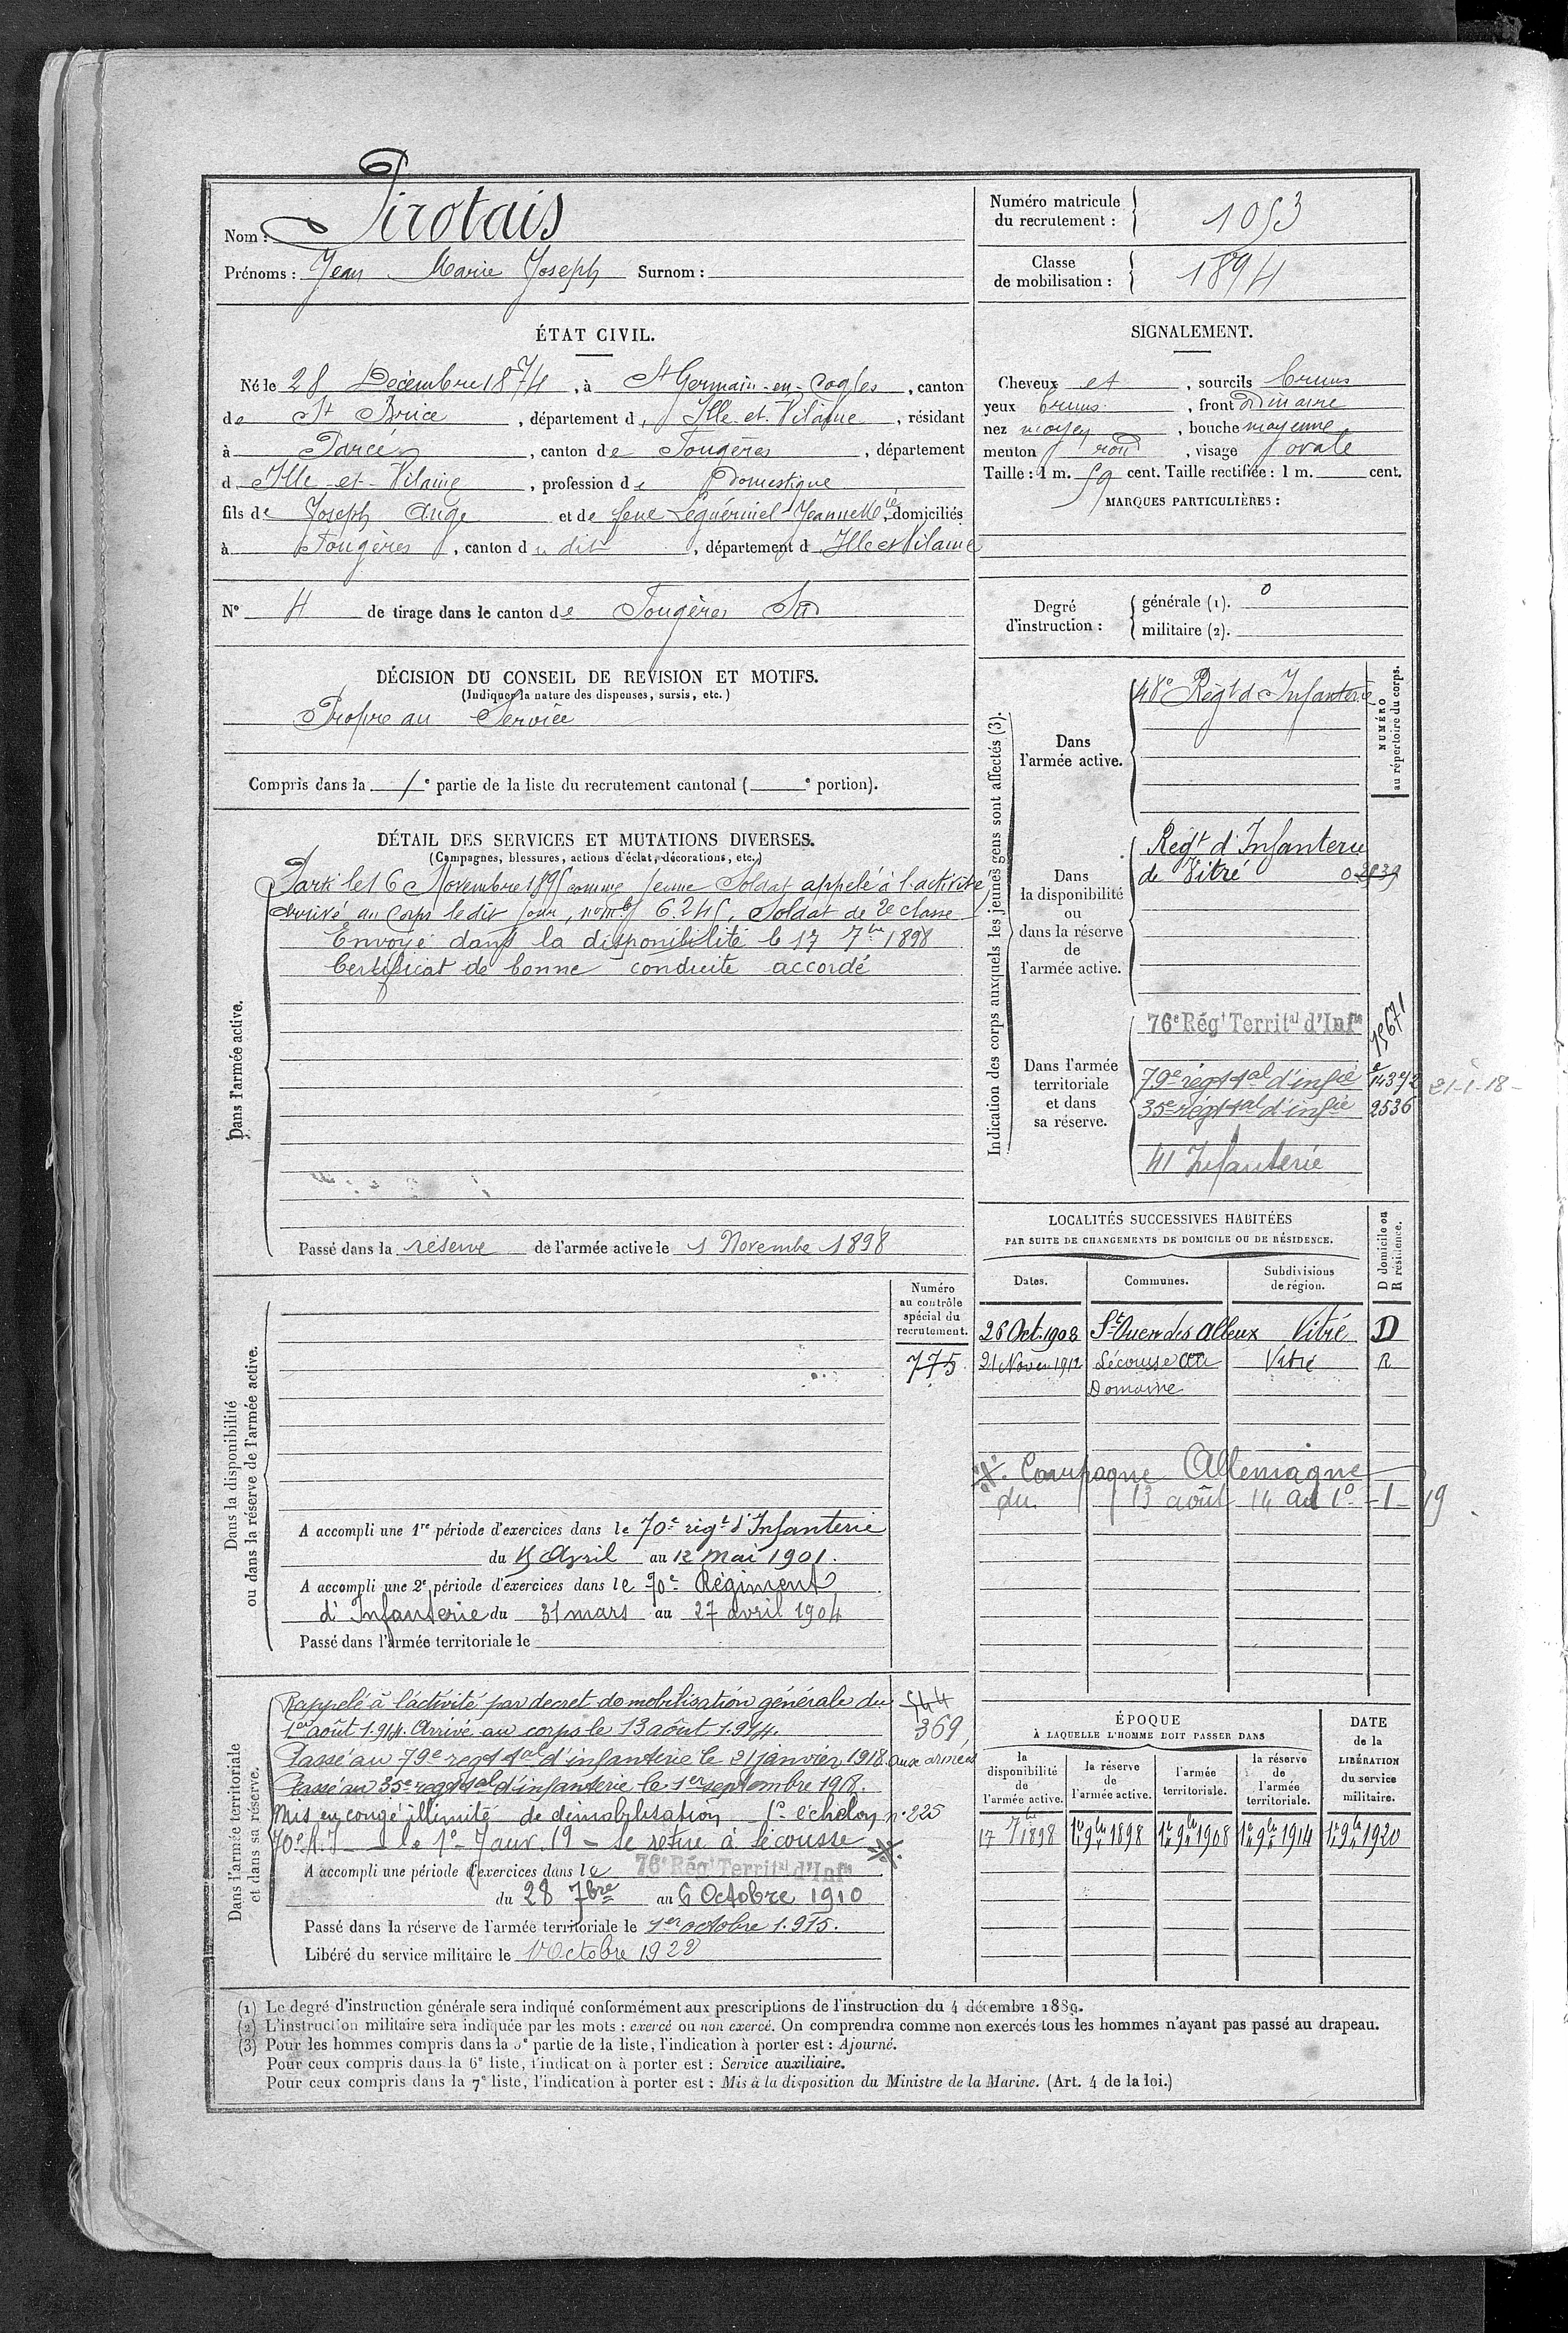 Nom : Pirotais
Prénoms : Jean Marie Joseph Surnom :
Numéro matricule du recrutement : 1053
Classe de mobilisation : 1894
ÉTAT CIVIL.
Né le 28 Décembre 1874, à St Germain-en-Cogles, canton
de St Brice, département d'Ille-et-Vilaine, résidant
à Parcé, canton de Fougères, département
d'Ille-et-Vilaine, profession de Domestique
fils de Joseph Ange et de feue Leguérinel Jeannette, domiciliés
à Fougères, canton du dit, département d'Ille et Vilaine
N° 4 de tirage dans le canton de Fougères Sud
SIGNALEMENT.
Cheveux et, sourcils bruns
yeux bruns, front ordinaire
nez moyen, bouche moyenne
menton rond, visage ovale
Taille : 1 m. 59 cent. Taille rectifiée : 1 m. cent.
MARQUES PARTICULIÈRES :
Degré d'instruction : générale (1). 0
militaire (2).
DÉCISION DU CONSEIL DE REVISION ET MOTIFS.
(Indiquer la nature des dispenses, sursis, etc.)
Propre au Service
Compris dans la 1e partie de la liste du recrutement cantonal ( e portion).
DÉTAIL DES SERVICES ET MUTATIONS DIVERSES.
(Campagnes, blessures, actions d'éclat, décorations, etc.)
Dans l'armée active.
Parti le 16 Novembre 1895 comme jeune Soldat appelé à l'activité
arrivé au Corps le dit jour, nom. 6.245, Soldat de 2e classe
Envoyé dans la disponibilité le 17 7bre 1898
Certificat de bonne conduite accordé
Passé dans la réserve de l'armée active le 1 Novembre 1898
Indication des corps auxquels les jeunes gens sont affectés (3).
NUMÉRO au répertoire du corps.
Dans l'armée active.
48e Régt d'Infanterie
Dans la disponibilité ou dans la réserve de l'armée active.
Régt d'Infanterie
de Vitré
Dans l'armée territoriale et dans sa réserve.
76e Régt Territal d'Infie 15671
79e régt tal d'infie 14372 21-1-18
35e régt tal d'infie 2536
41 Infanterie
LOCALITÉS SUCCESSIVES HABITÉES
PAR SUITE DE CHANGEMENTS DE DOMICILE OU DE RÉSIDENCE.
Dates. Communes. Subdivisions de région. D domicile ou R résidence.
26 Oct. 1908 St Ouen des Alleux Vitré D
21 Noven 1912 Lécousse au Vitré R
Domaine
Campagne Allemagne
du 13 août 14 au 1o-1-19
Dans la disponibilité ou dans la réserve de l'armée active.
Numéro au contrôle spécial du recrutement.
775
A accompli une 1re période d'exercices dans le 70e régt d'Infanterie
du 15 Avril au 12 mai 1901.
A accompli une 2e période d'exercices dans le 70e Régiment
d'Infanterie du 31 mars au 27 avril 1904
Passé dans l'armée territoriale le
Dans l'armée territoriale et dans sa réserve.
Rappelé à l'activité par decret de mobilisation générale du 544
1er août 1.914. Arrivé au corps le 13 août 1.914. 369
Passé au 79e régt tal d'infanterie le 21 janvier 1918. aux armées
Passé au 35e régt tal d'infanterie le 1er septembre 1918.
Mis en congé illimité de démobilisation 1o échelon n° 225
70e R.I le 1o Janv. 19 - se retire à Lécousse
A accompli une période d'exercices dans le 76e Régt Territal d'Infie
du 28 7bre au 6 Octobre 1910
Passé dans la réserve de l'armée territoriale le 1er octobre 1.915.
Libéré du service militaire le 1 Octobre 1922
ÉPOQUE
À LAQUELLE L'HOMME DOIT PASSER DANS
la disponibilité de l'armée active. la réserve de l'armée active. l'armée territoriale. la réserve de l'armée territoriale.
DATE de la LIBÉRATION du service militaire.
17 7bre 1898 1er 9bre 1898 1er 9bre 1908 1er 9bre 1914 1er 9bre 1920
(1) Le degré d'instruction générale sera indiqué conformément aux prescriptions de l'instruction du 4 décembre 1889.
(2) L'instruction militaire sera indiquée par les mots : exercé ou non exercé. On comprendra comme non exercés tous les hommes n'ayant pas passé au drapeau.
(3) Pour les hommes compris dans la 5e partie de la liste, l'indication à porter est : Ajourné.
Pour ceux compris dans la 6e liste, l'indication à porter est : Service auxiliaire.
Pour ceux compris dans la 7e liste, l'indication à porter est : Mis à la disposition du Ministre de la Marine. (Art. 4 de la loi.)